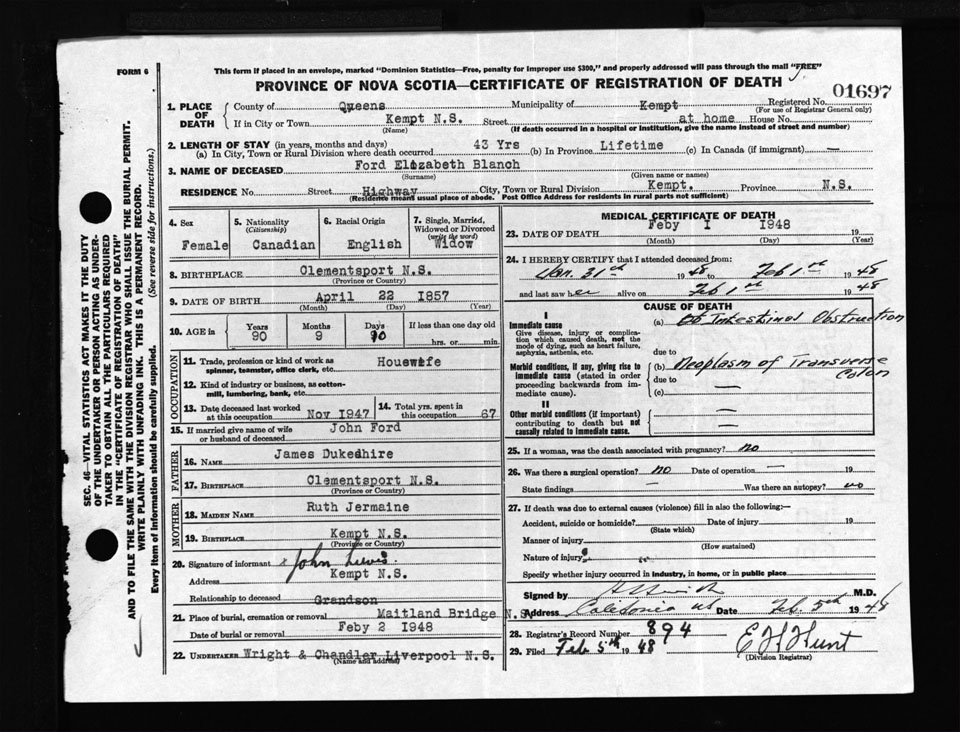 FORM 6
This form if placed in an envelope, marked "Dominion Statistics—Free, penalty for improper use $300," and properly addressed will pass through the mail "FREE"
PROVINCE OF NOVA SCOTIA—CERTIFICATE OF REGISTRATION OF DEATH
01697
1. PLACE OF DEATH County of Queens Municipality of Kempt Registered No.
(For use of Registrar General only)
If in City or Town Kempt N.S. Street at home House No.
(Name) (If death occurred in a hospital or institution, give the name instead of street and number)
2. LENGTH OF STAY (in years, months and days)
(a) In City, Town or Rural Division where death occurred 43 Yrs (b) In Province Lifetime (c) In Canada (if immigrant) —
3. NAME OF DECEASED Ford Elizabeth Blanch
(Surname) (Given name or names)
RESIDENCE No. Street Highway City, Town or Rural Division Kempt. Province N.S.
(Residence means usual place of abode. Post Office Address for residents in rural parts not sufficient)
4. Sex Female
5. Nationality (Citizenship) Canadian
6. Racial Origin English
7. Single, Married, Widowed or Divorced (write the word) Widow
8. BIRTHPLACE Clementsport N.S.
(Province or Country)
9. DATE OF BIRTH April 22 1857
(Month) (Day) (Year)
10. AGE in Years 90 Months 9 Days If less than one day old hrs. or min.
OCCUPATION
11. Trade, profession or kind of work as spinner, teamster, office clerk, etc. Housewife
12. Kind of industry or business, as cotton-mill, lumbering, bank, etc.
13. Date deceased last worked at this occupation Nov 1947
14. Total yrs. spent in this occupation 67
15. If married give name of wife or husband of deceased John Ford
FATHER
16. NAME James Dukedhire
17. BIRTHPLACE Clementsport N.S.
(Province or Country)
MOTHER
18. MAIDEN NAME Ruth Jermaine
19. BIRTHPLACE Kempt N.S.
(Province or Country)
20. Signature of informant x John Lewis.
Address Kempt N.S.
Relationship to deceased Grandson
21. Place of burial, cremation or removal Maitland Bridge N.S.
Date of burial or removal Feby 2 1948
22. UNDERTAKER Wright & Chandler Liverpool N.S.
(Name and address)
MEDICAL CERTIFICATE OF DEATH
23. DATE OF DEATH Feby I 1948 19
(Month) (Day) (Year)
24. I HEREBY CERTIFY that I attended deceased from:
Jan. 31st 1948 to Feb 1st 1948
and last saw her alive on Feb 1st 1948
CAUSE OF DEATH
I
Immediate cause
Give disease, injury or complication which caused death, not the mode of dying, such as heart failure, asphyxia, asthenia, etc.
(a) Intestinal Obstruction
due to
Morbid conditions, if any, giving rise to immediate cause (stated in order proceeding backwards from immediate cause).
(b) Neoplasm of Transverse Colon
due to —
(c)
II
Other morbid conditions (if important) contributing to death but not causally related to immediate cause.
—
—
25. If a woman, was the death associated with pregnancy? no
26. Was there a surgical operation? no Date of operation — 19
State findings — Was there an autopsy? no
27. If death was due to external causes (violence) fill in also the following:—
Accident, suicide or homicide? Date of injury 19
(State which)
Manner of injury
(How sustained)
Nature of injury
Specify whether injury occurred in industry, in home, or in public place
Signed by M.D.
Address Caledonia NS Date Feb. 5th 1948
28. Registrar's Record Number 894
29. Filed Feb 5th 1948 E H Hunt
(Division Registrar)
SEC. 46—VITAL STATISTICS ACT MAKES IT THE DUTY
OF THE UNDERTAKER OR PERSON ACTING AS UNDER-
TAKER TO OBTAIN ALL THE PARTICULARS REQUIRED
IN THE "CERTIFICATE OF REGISTRATION OF DEATH"
AND TO FILE THE SAME WITH THE DIVISION REGISTRAR WHO SHALL ISSUE THE BURIAL PERMIT.
WRITE PLAINLY WITH UNFADING INK. THIS IS A PERMANENT RECORD.
Every item of information should be carefully supplied. (See reverse side for instructions.)